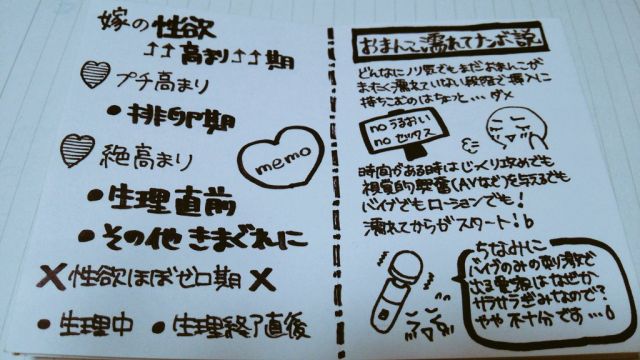 嫁の性欲
↑↑高まり↑↑期
プチ高まり
・排卵期
絶高まり
・生理直前
・その他きまぐれに
✕性欲ほぼゼロ期✕
・生理中 ・生理終了直後
memo
おまんこ濡れてナンボ説
どんなにノリ気でもまだおまんこが
まったく濡れていない段階で挿入に
持ちこむのはちょっと…ダメ
no うるおい
no セックス
時間がある時はじっくり攻めでも
視覚的興奮(AVなど)を与えるでも
バイブでもローションでも!
濡れてからがスタート!
ちなみに
バイブのみの刺激で
出る愛液はなぜか
サラサラぎみなので?
やや不十分です…